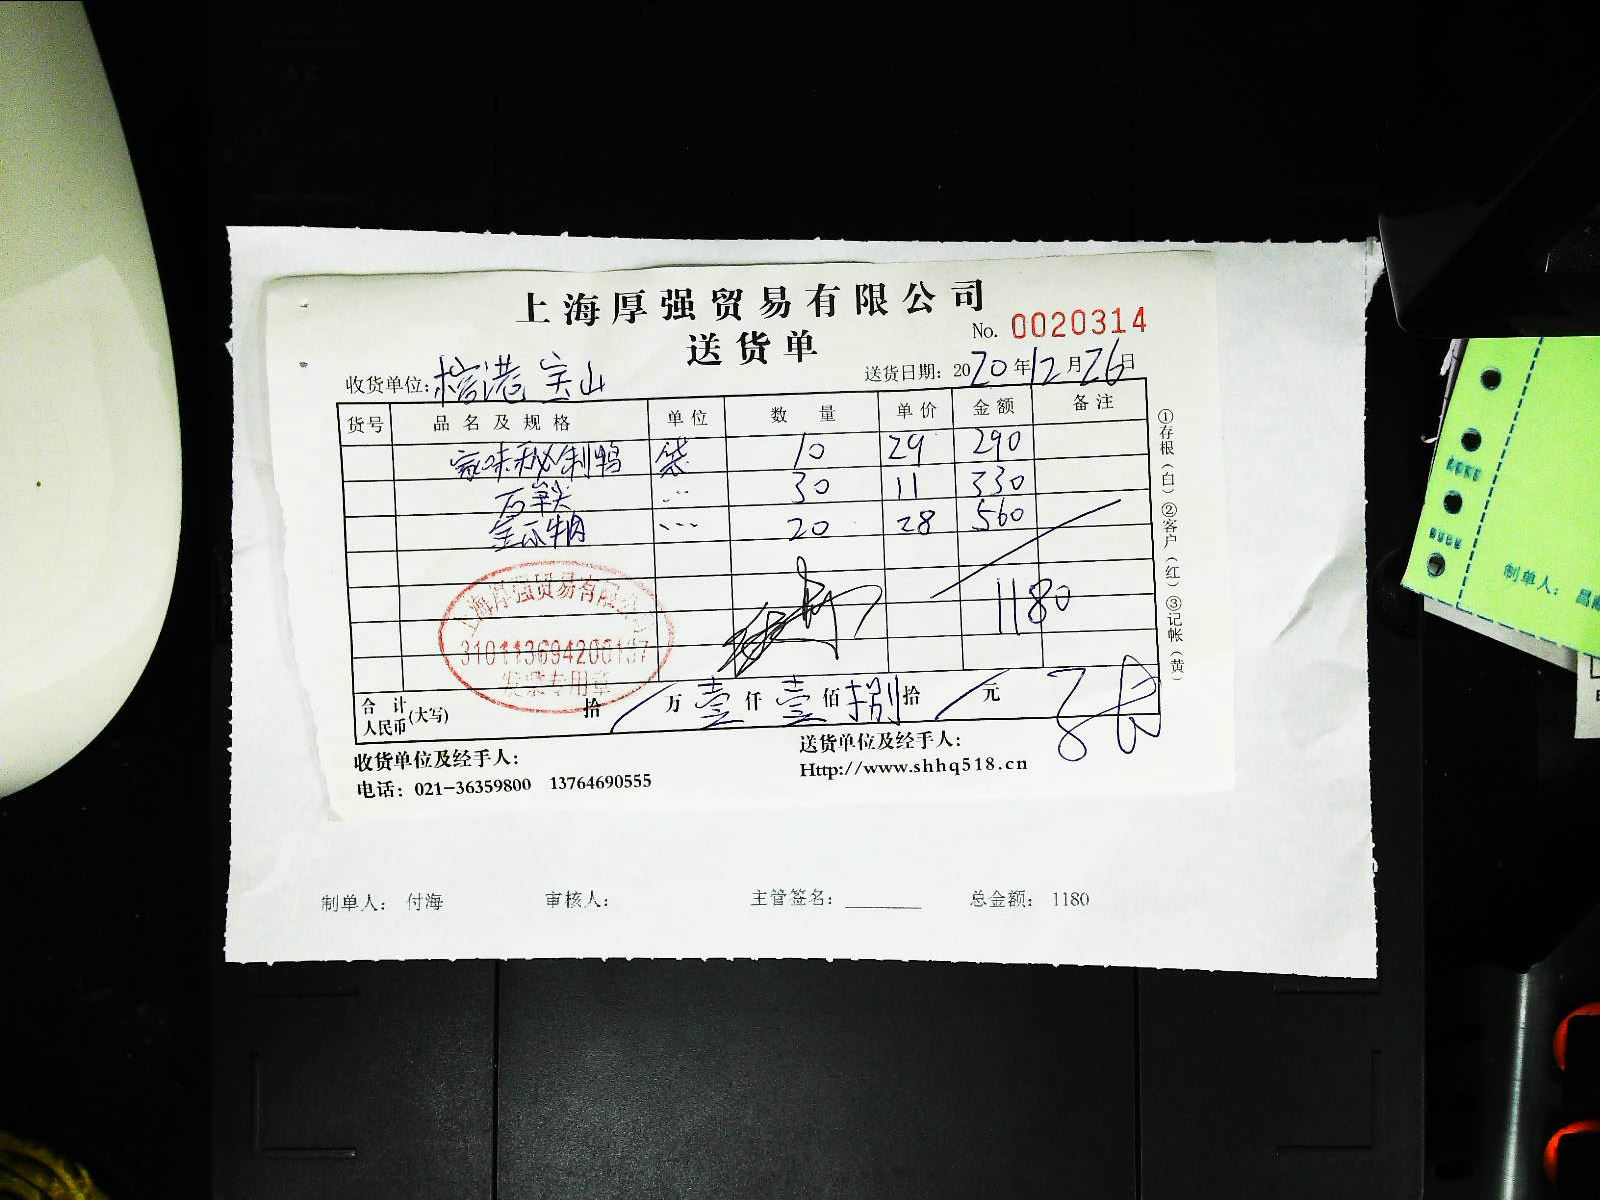 上海厚强贸易有限公司
送货单
No. 0020314
收货单位: 榕港 宝山
送货日期: 2020年12月26日
货号 品名及规格 单位 数量 单价 金额 备注
家味秘制鸭 袋 10 29 290
石羊头 〃 30 11 330
金不牛肉 〃 20 28 560
1180
上海厚强贸易有限公司
310113694200137
发票专用章
合计人民币(大写) 拾 / 万 壹 仟 壹 佰 捌 拾 / 元
收货单位及经手人:
送货单位及经手人:
电话: 021-36359800 13764690555
Http://www.shhq518.cn
①存根(白)②客户(红)③记帐(黄)
制单人: 付海 审核人: 主管签名: 总金额: 1180
制单人: